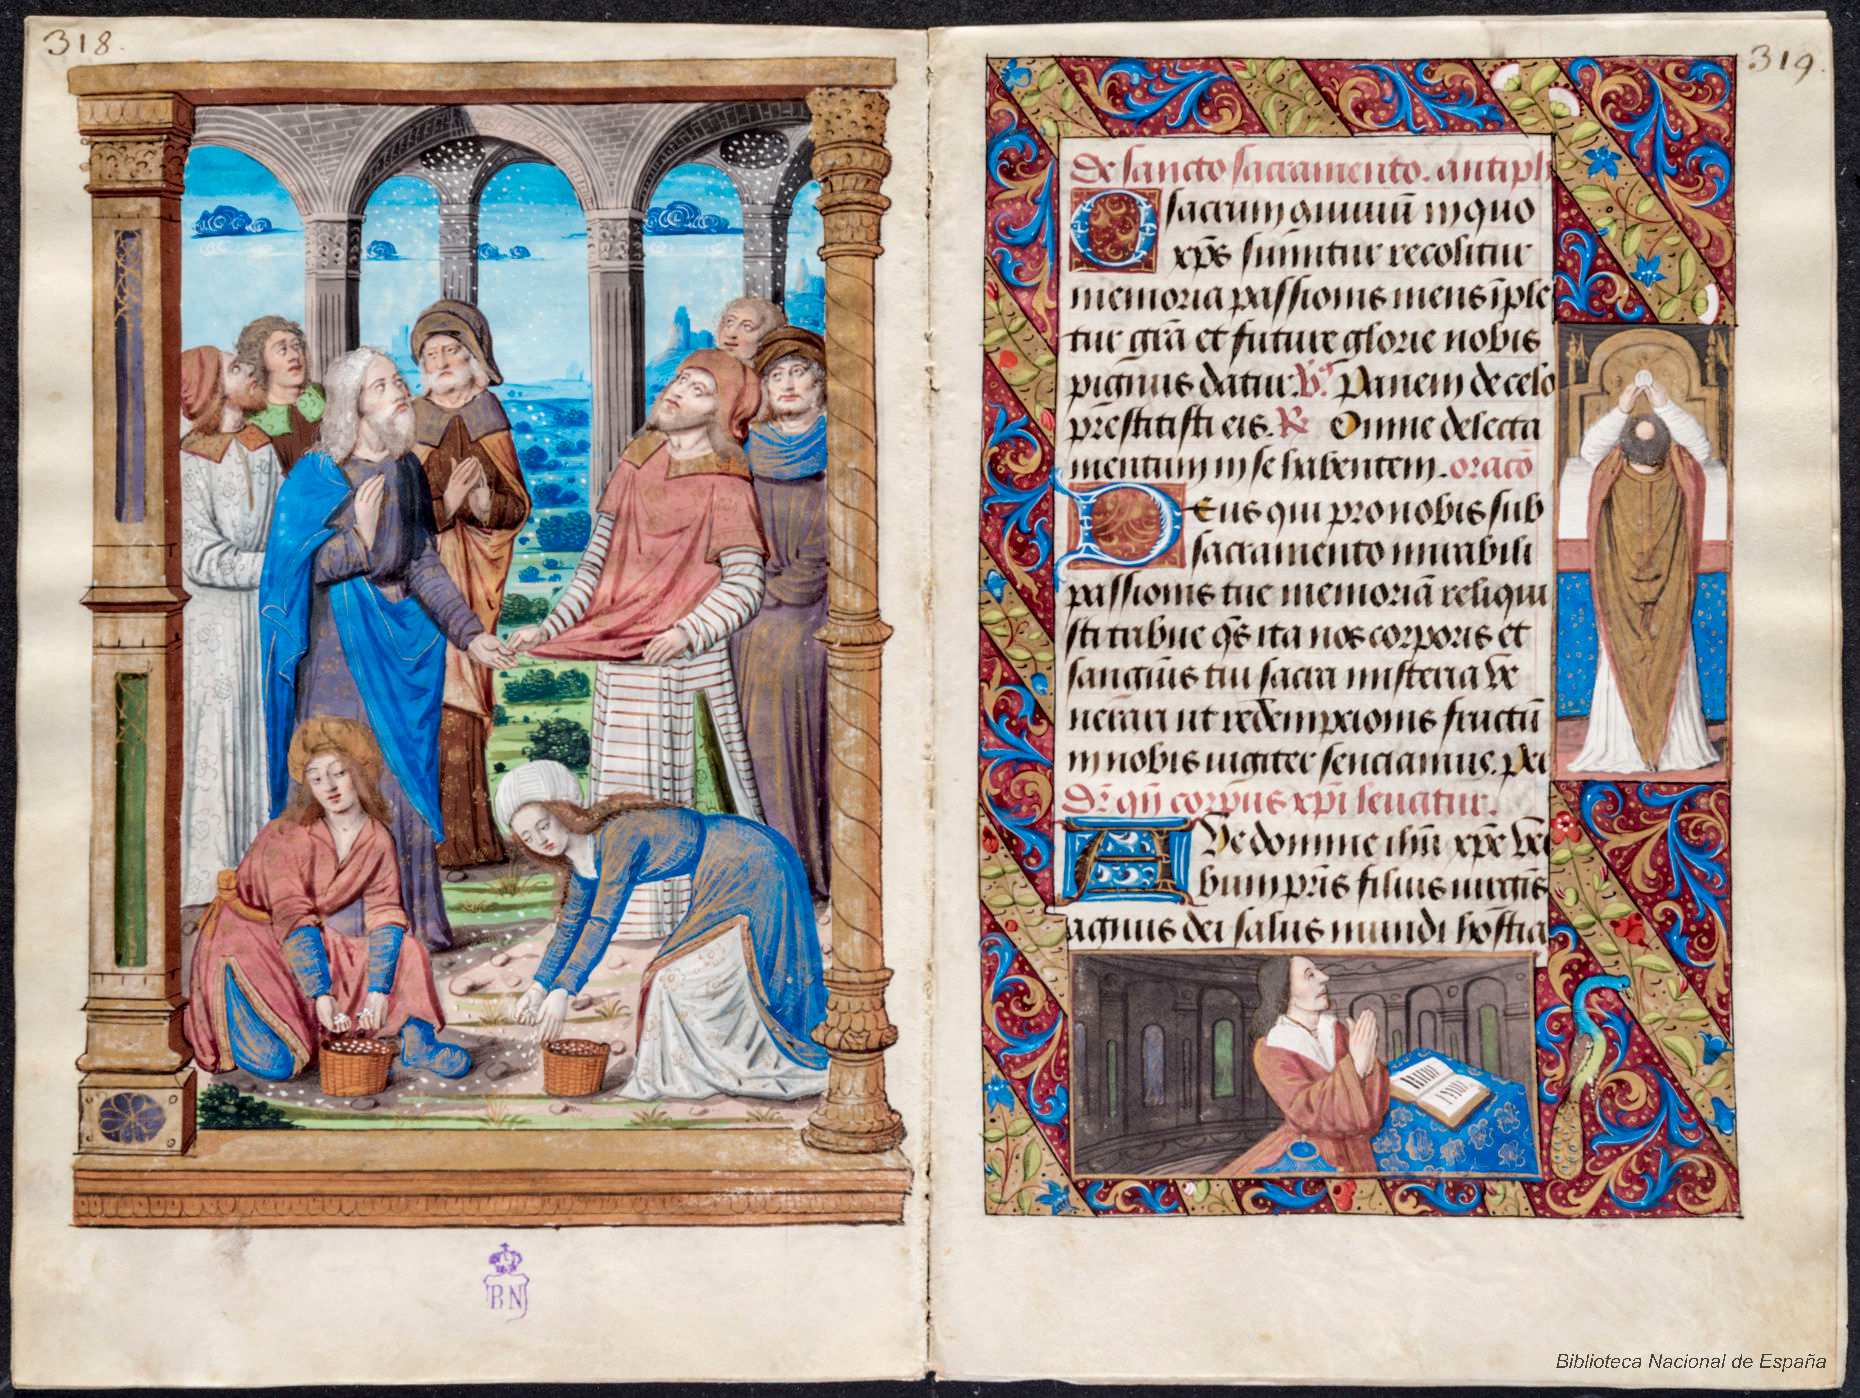 318.
BN
319.
De sancto sacramento. antiph
O sacrum guiuiū in quo
xp̄s sumitur recolitur
memoria passionis mens īple
tur gr̄a et future glorie nobis
pignus datur. V̄. Panem de celo
prestitisti eis. R̄ Omne delecta
mentum in se habentem. oracō
Deus qui pro nobis sub
sacramento mirabili
passionis tue memoriā reliqui
sti tribue q̄s ita nos corporis et
sanguīs tui sacra misteria ve
nerari ut redempcionis fructū
in nobis iugiter senciamus. Per
D̄r qn̄ corpus xp̄i leuatur.
Aue domine ihū xp̄e ver
bum pr̄is filius virgīs
agnus dei salus mundi hostia
Biblioteca Nacional de España